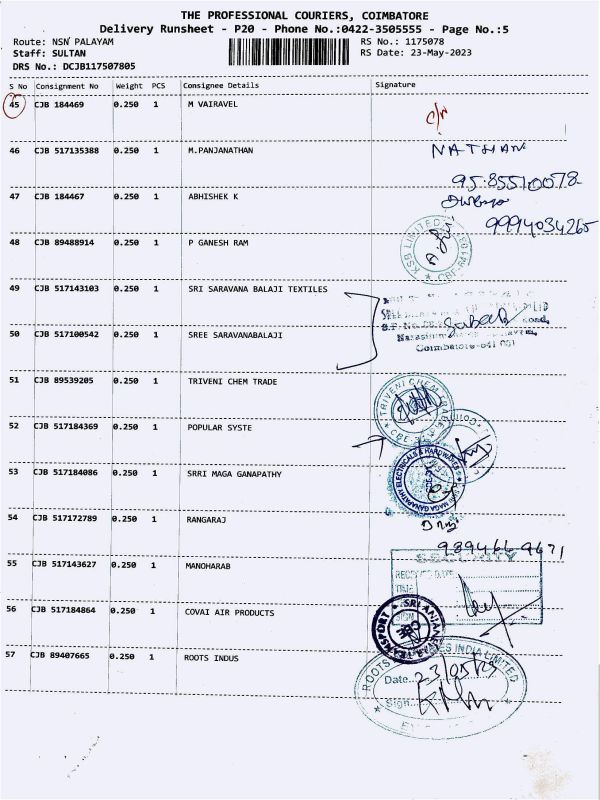 THE PROFESSIONAL COURIERS, COIMBATORE
Delivery Runsheet - P20 - Phone No.:0422-3505555 - Page No.:5
Route: NSN PALAYAM RS No.: 1175078
Staff: SULTAN RS Date: 23-May-2023
DRS No.: DCJB117507805
S No Consignment No Weight PCS Consignee Details Signature
45 CJB 184469 0.250 1 M VAIRAVEL
46 CJB 517135388 0.250 1 M.PANJANATHAN NATHAN
95-85510078
47 CJB 184467 0.250 1 ABHISHEK K
9994034265
48 CJB 89488914 0.250 1 P GANESH RAM KSB LIMITED
49 CJB 517143103 0.250 1 SRI SARAVANA BALAJI TEXTILES
50 CJB 517100542 0.250 1 SREE SARAVANABALAJI
Coimbatore-641 031
51 CJB 89539205 0.250 1 TRIVENI CHEM TRADE TRIVENI CHEM TRADE
52 CJB 517184369 0.250 1 POPULAR SYSTE
53 CJB 517184086 0.250 1 SRRI MAGA GANAPATHY SRRI MAGA GANAPATHY ELECTRICALS & HARDWARES
54 CJB 517172789 0.250 1 RANGARAJ
9894669671
55 CJB 517143627 0.250 1 MANOHARAB SECURITY
RECEIVED DATE
TIME
SIGN
56 CJB 517184864 0.250 1 COVAI AIR PRODUCTS TRANSPORT CBE
57 CJB 89407665 0.250 1 ROOTS INDUS ROOTS INDUSTRIES INDIA LIMITED
Date 23/05/23
Sign